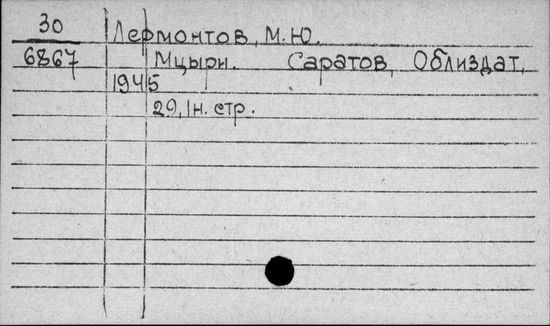 30 Лермонтов, М.Ю.
6867 Мцыри. Саратов, Облиздат,
1945
29, 1н. стр.